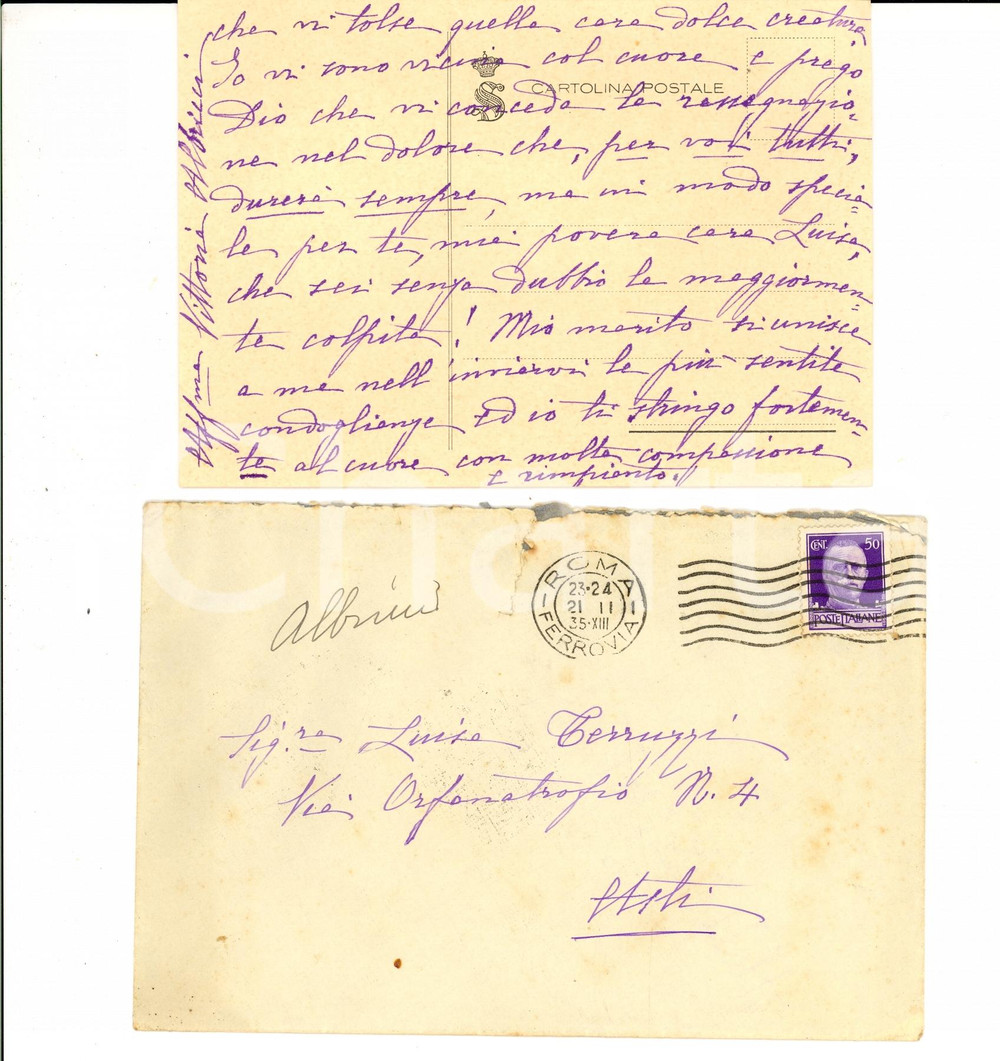 che vi tolse quella cara dolce creatura
Io vi sono vicina col cuore e prego
CARTOLINA POSTALE
Dio che vi conceda la rassegnazio=
ne nel dolore che, per voi tutti,
durerà sempre, ma in modo specia=
le per te, mia povera cara Luisa,
che sei senza dubbio la maggiormen=
te colpita! Mio marito si unisce
a me nell'inviarvi le più sentite
condoglianze ed io ti stringo fortemen=
te al cuore con molta compassione
e rimpianto.
Aff.ma Vittoria Albricci
ROMA
FERROVIA
23·24
21 II
35·XIII
CENT. 50
POSTE ITALIANE
Sig.ra Luisa Terruzzi
Via Orfanatrofio N. 4
Asti